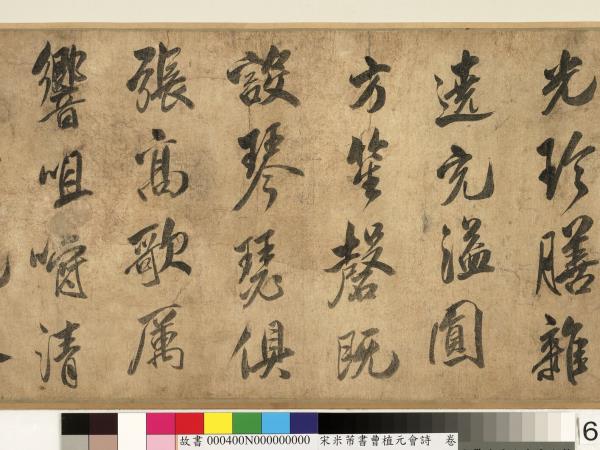 光珍膳雜
遶充溢圓
方笙磬既
設琴瑟俱
張高歌厲
響咀嚼清
故書 000400N000000000 宋米芾書曹植元會詩 卷
6